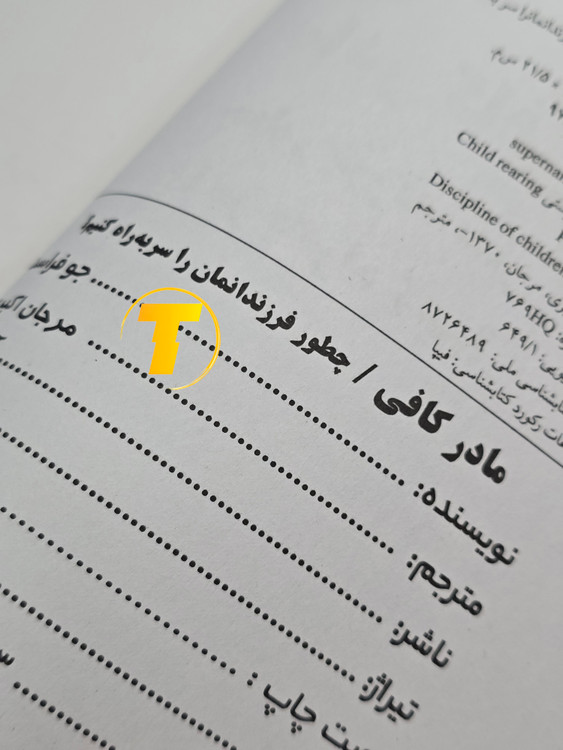 ۲۱/۵ س‌م.
supernan
Child rearing
Discipline of children
مرجان، ۱۳۷۰-، مترجم
۷۶۹HQ
۶۴۹/۱
ملی: ۸۷۲۶۴۸۹
رکورد کتابشناسی: فیپا
مادر کافی / چطور فرزندانمان را سربه‌راه کنیم
نویسنده: ........ جو
مترجم: ........ مرجان
ناشر: ........
تیراژ: ........
چاپ : ........
T